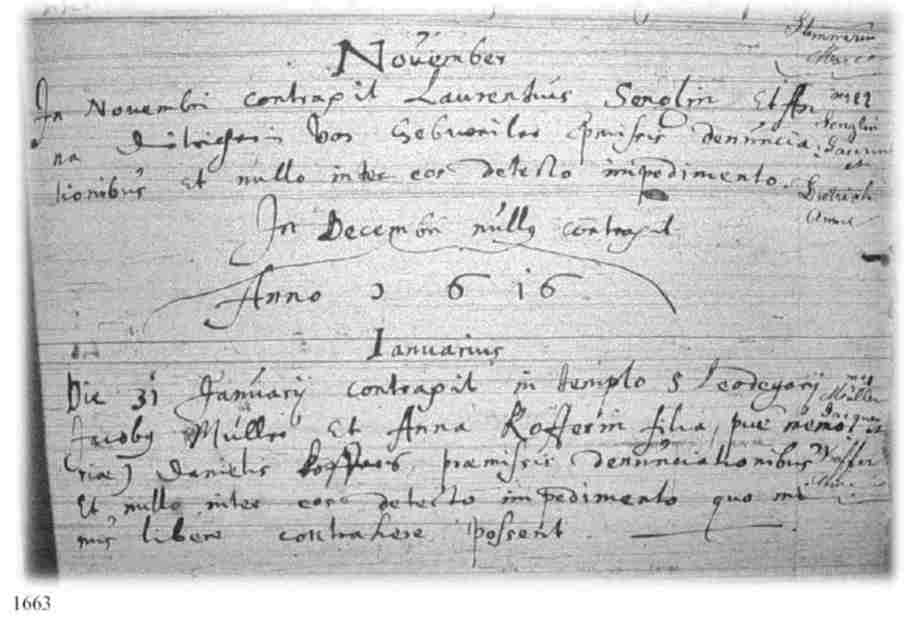 November
In Novembri contraxit Laurentius Senglin Et An
na Dietrichin von Gebweiler præmissis denuncia:
tionibus Et nullo inter eos detecto impedimento.
In Decembri nullus contraxit
Anno 1616
Ianuarius
Die 31 Januarij contraxit in templo S Leodegarij
Jacobus Müller Et Anna Rofferin filia, (piæ memo
riae) Danielis Roffers, præmissis denunciationibus
Et nullo inter eos detecto impedimento quo mi
nus libere contrahere possent.
Senglin
Dietrich
Anna
Müller
1663